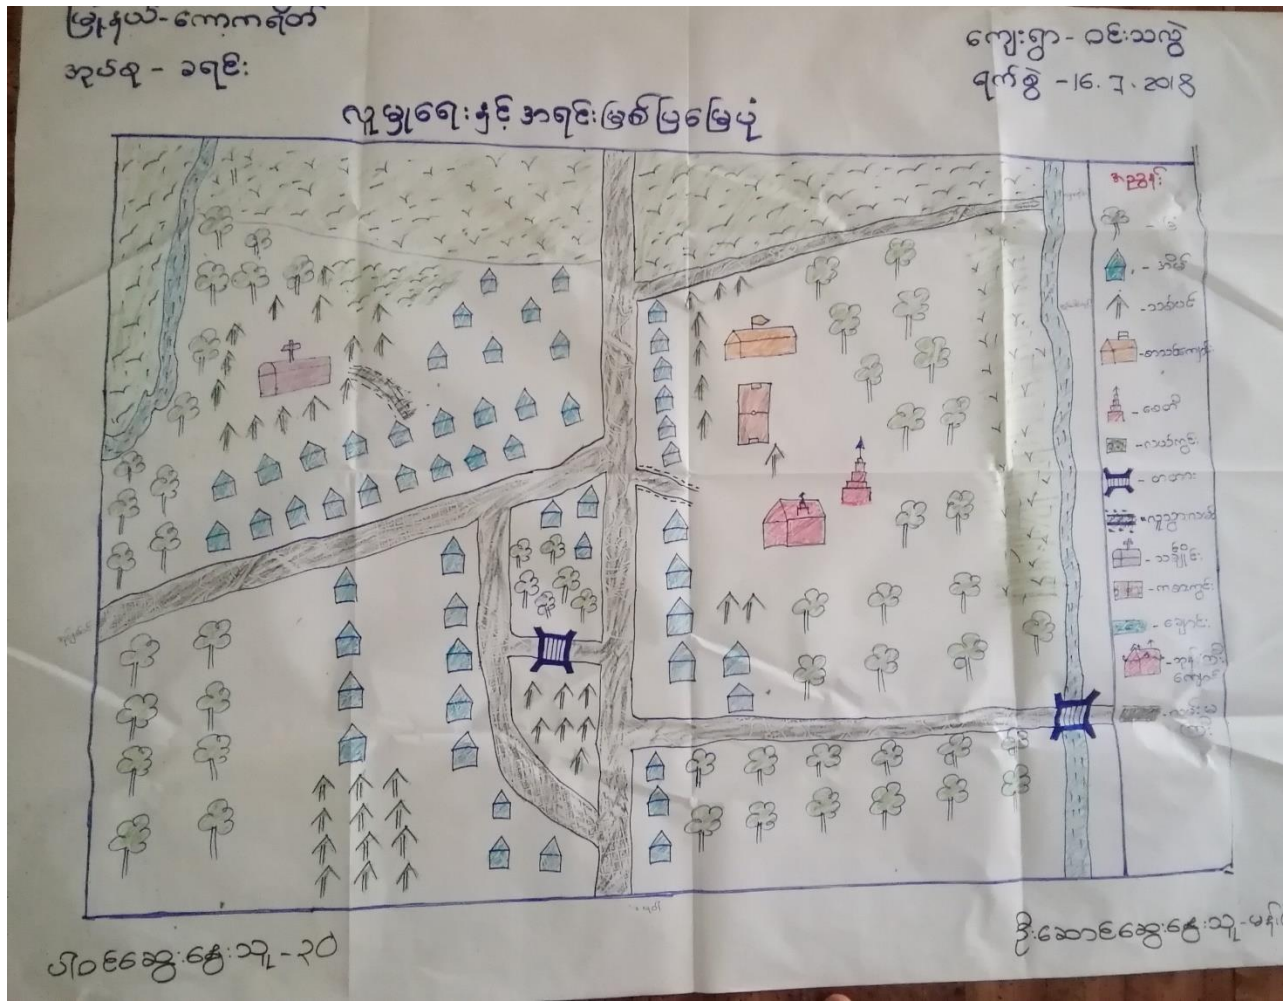 မြို့နယ်-ကော့ကရိတ်
အုပ်စု - ခရင်း
ကျေးရွာ - ဝင်းသလွဲ
ရက်စွဲ -16.7.2018
လူမှုရေးနှင့်အရင်းမြစ်ပြမြေပုံ
အညွှန်း
- အိမ်
- သစ်ပင်
-စာသင်ကျောင်း
- စေတီ
-လယ်ကွင်း
- တံတား
- သင်္ချိုင်း
- ကစားကွင်း
- ချောင်း
ပါဝင်ဆွေးနွေးသူ-၃၀
ဦးဆောင်ဆွေးနွေးသူ-မန်း